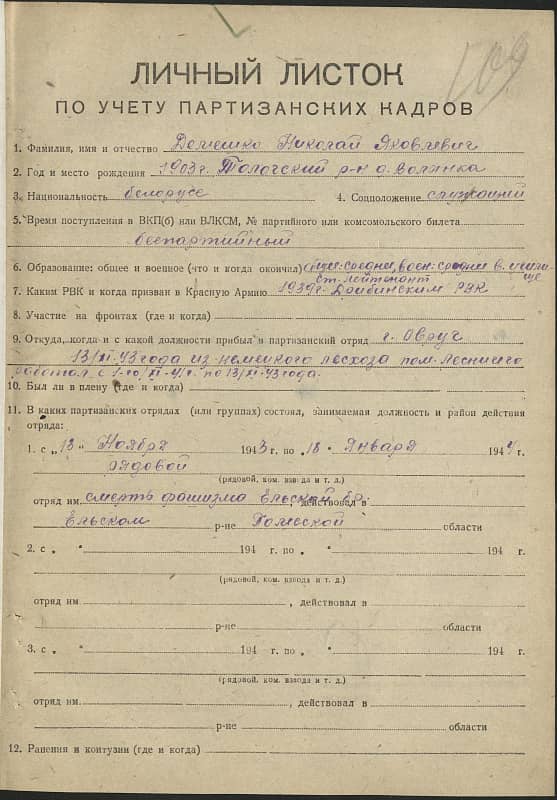 109
ЛИЧНЫЙ ЛИСТОК
ПО УЧЕТУ ПАРТИЗАНСКИХ КАДРОВ
1. Фамилия, имя и отчество Демешко Николай Яковлевич
2. Год и место рождения 1903г. Толочский р-н д. Волянка
3. Национальность белорусс 4. Соцположение служащий
5. Время поступления в ВКП(б) или ВЛКСМ, № партийного или комсомольского билета
беспартийный
6. Образование: общее и военное (что и когда окончил) общ: средне, воен: средни в. училище
ст. лейтенант
7. Каким РВК и когда призван в Красную Армию 1939г. РВК
8. Участие на фронтах (где и когда)
9. Откуда, когда и с какой должности прибыл в партизанский отряд г. Овруч
13/XI-43 года из немецкого лесхоза пом. Лесничего
работал с 1-го/XI-41г. по 13/XI-43 года.
10. Был ли в плену (где и когда)
11. В каких партизанских отрядах (или группах) состоял, занимаемая должность и район действия
отряда:
1. с „13" Ноября 1943 г. по „18" Января 1944 г.
рядовой
(рядовой, ком. взвода и т. д.)
отряд им. смерть фашизма Ельской бр. действовал в
Ельском р-не Полесской области
2. с „ " 194 г. по „ " 194 г.
(рядовой, ком. взвода и т. д.)
отряд им , действовал в
р-не области
3. с „ " 194 г. по „ " 194 г.
(рядовой, ком. взвода и т. д.)
отряд им , действовал в
р-не области
12. Ранения и контузии (где и когда)